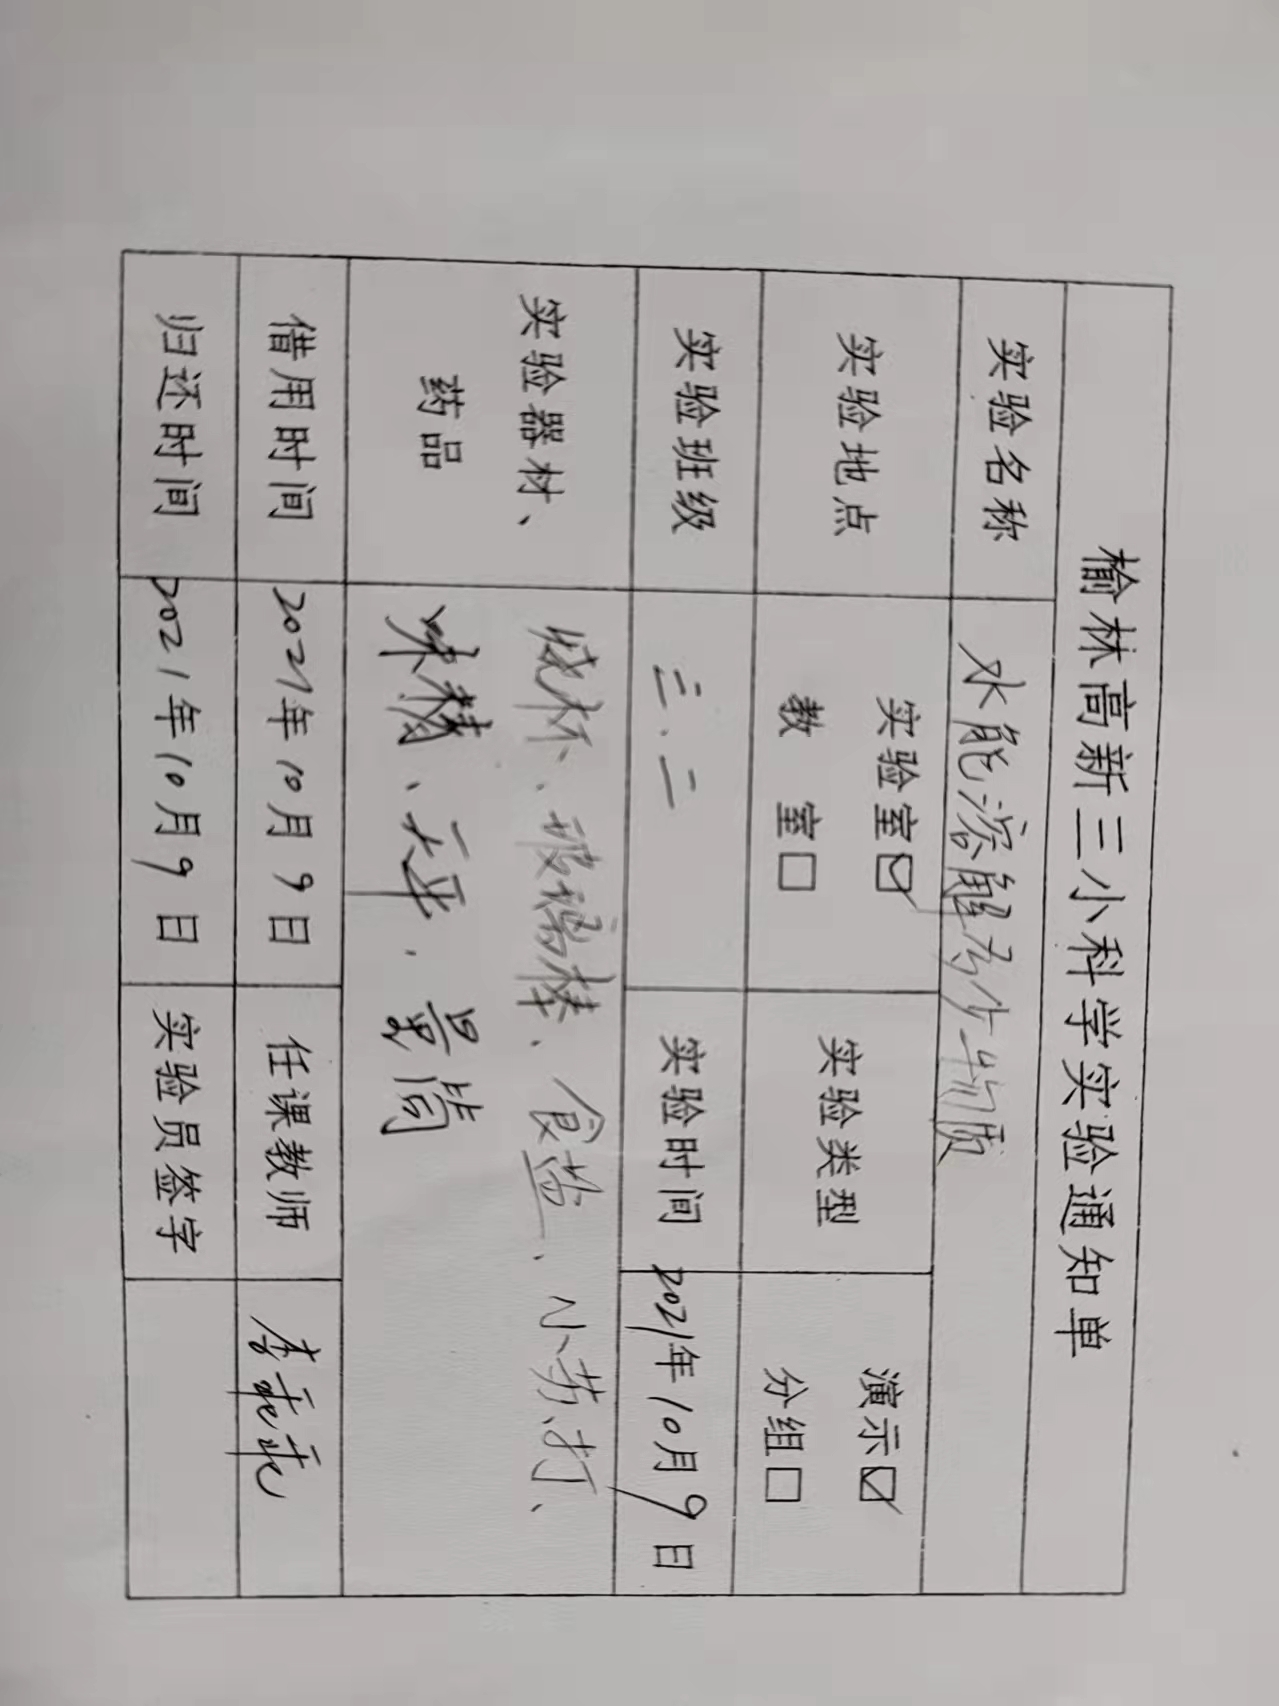 榆林高新三小科学实验通知单
实验名称 水能溶解多少物质
实验地点 实验室☑ 教 室☐ 实验类型 演示☑ 分组☐
实验班级 三.二 实验时间 2021年10月9日
实验器材、药品 烧杯、玻璃棒、食盐、小苏打、
味精、天平、量筒
借用时间 2021年10月9日 任课教师 李
归还时间 2021年10月9日 实验员签字